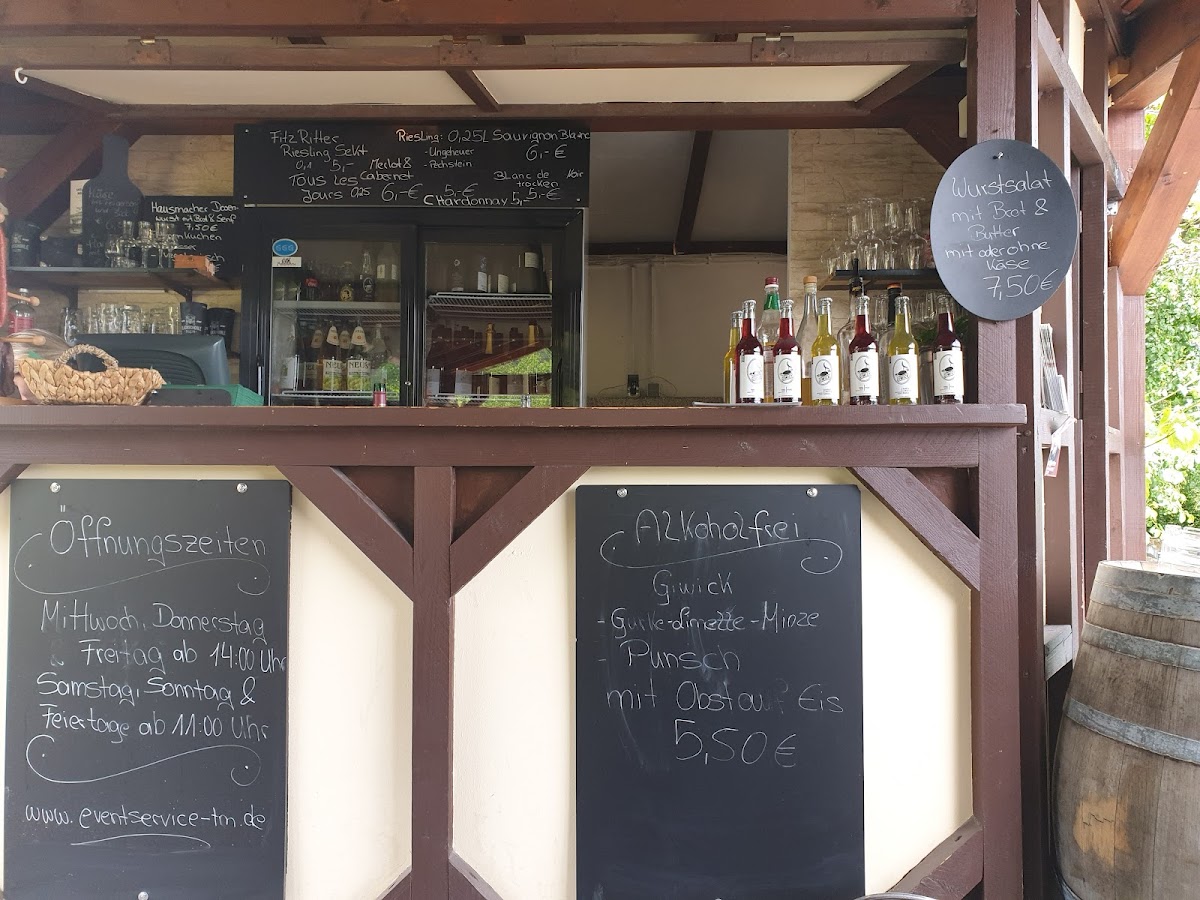 Fitz Ritter
Riesling Sekt
0,1 5,-
Tous Les
Jours 0,25
Merlot &
Cabernet
6,-€
Riesling: 0,25L
- Ungeheuer
- Pechstein
5,-€
Chardonnay 5,-
Sauvignon Blanc
6,-€
Blanc de Noir
trocken
5,-€
Hausmacher Dosen-
wurst mit Brot & Senf
7,50€
Wurstsalat
mit Brot &
Butter
mit oder ohne
Käse
7,50€
Öffnungszeiten
Mittwoch, Donnerstag
& Freitag ab 14:00 Uhr
Samstag, Sonntag &
Feiertage ab 11:00 Uhr
www.eventservice-tm.de
Alkoholfrei
Giwick
- Gurke-Limette-Minze
- Punsch
mit Obst auf Eis
5,50€